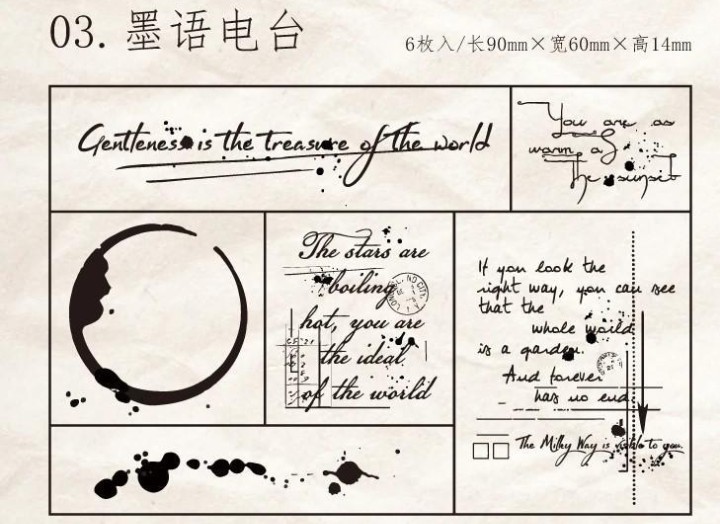 03. 墨语电台
6枚入/长90mm×宽60mm×高14mm
Gentleness is the treasure of the world
You are as
warm as
The sunset
The stars are
boiling
hot, you are
the ideal
of the world
If you look the
right way, you can see
that the
whole world
is a garden.
And forever
has no end.
The Milky Way is visible to you.